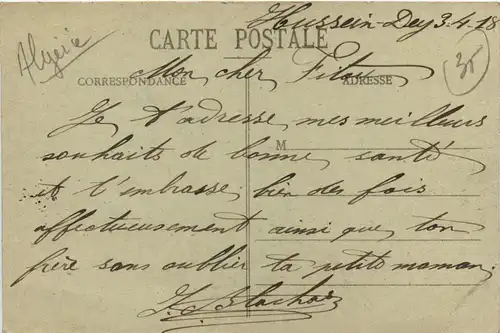 Hussein-Dey 3.4.18
Algérie
CARTE POSTALE
35
Mon cher
CORRESPONDANCE
ADRESSE
Je t'adresse mes meilleurs
M
souhaits de bonne santé
et t'embrasse bien des fois
affectueusement ainsi que ton
frère sans oublier ta petite maman